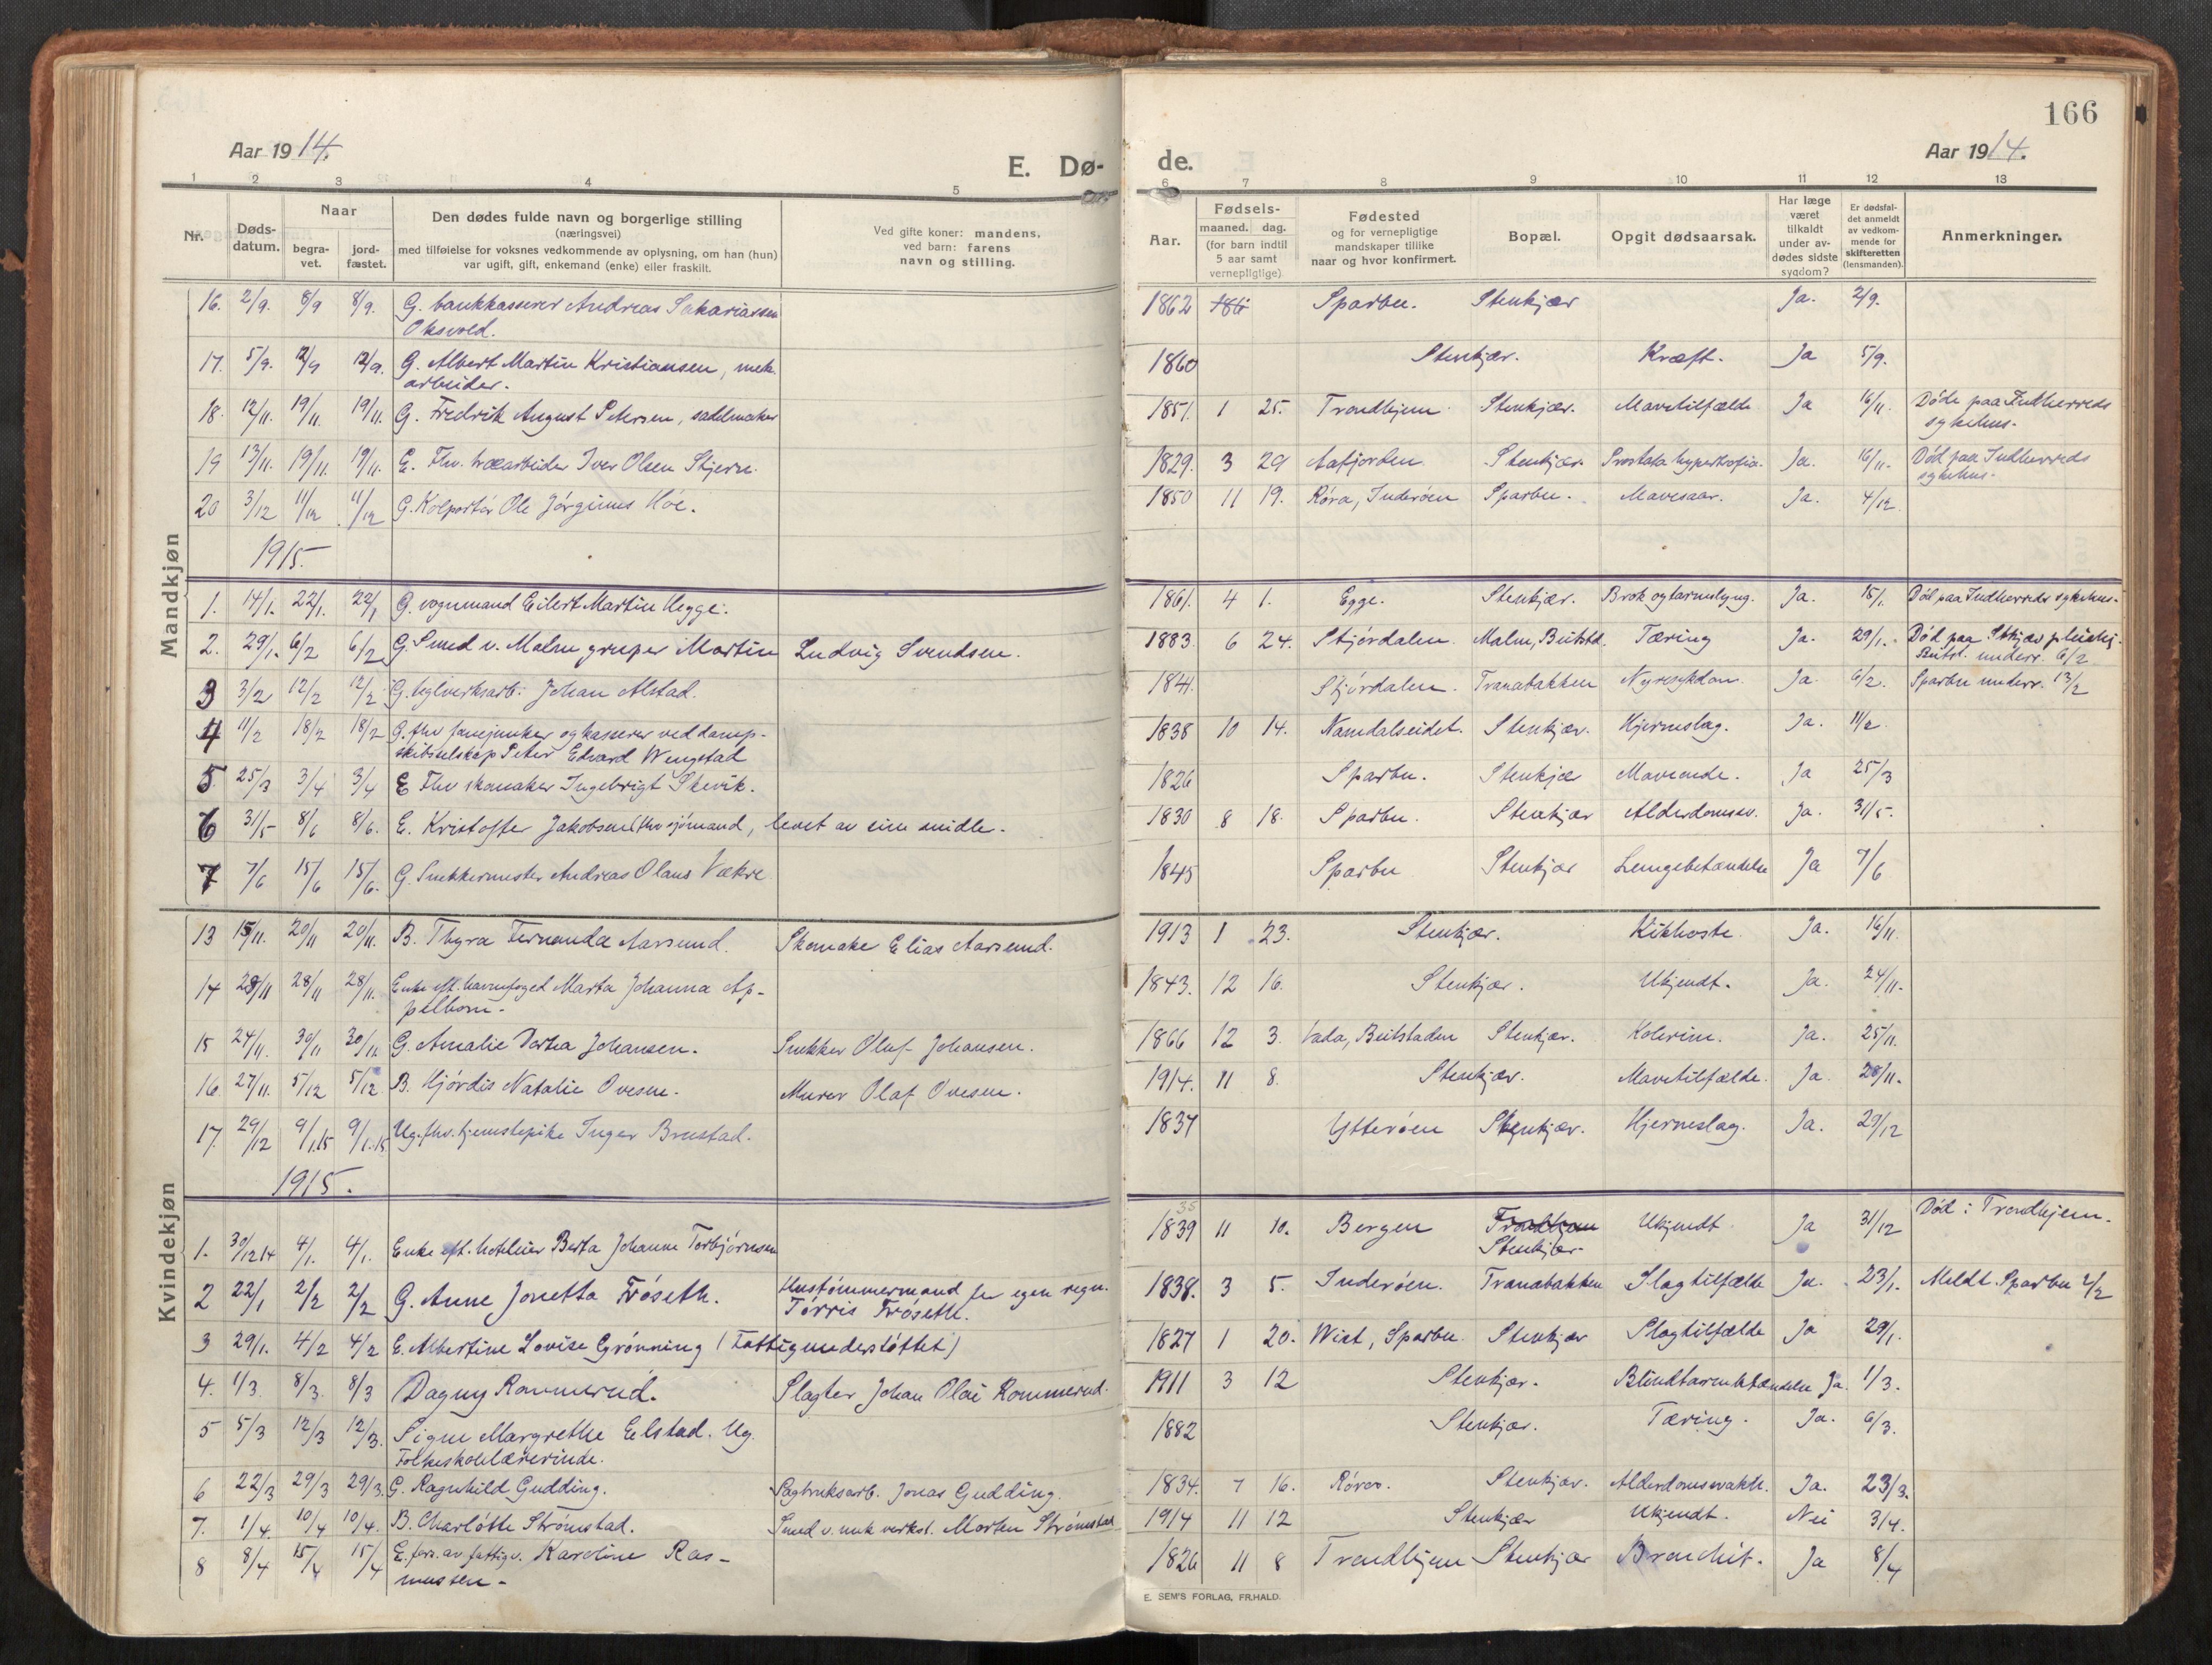 166
Aar 1914.
E. Dø-
de.
Aar 1914.
1 2 3 4 5 6 7 8 9 10 11 12 13
Nr.
Døds-
datum.
Naar
begra-
vet.
jord-
fæstet.
Den dødes fulde navn og borgerlige stilling
(næringsvei)
med tilføielse for voksnes vedkommende av oplysning, om han (hun)
var ugift, gift, enkemand (enke) eller fraskilt.
Ved gifte koner: mandens,
ved barn: farens
navn og stilling.
Aar.
Fødsels-
maaned. dag.
(for barn indtil
5 aar samt
vernepligtige)
Fødested
og for vernepligtige
mandskaper tillike
naar og hvor konfirmert.
Bopæl.
Opgit dødsaarsak.
Har læge
været
tilkaldt
under av-
dødes sidste
sygdom?
Er dødsfal-
det anmeldt
av vedkom-
mende for
skifteretten
(lensmanden).
Anmerkninger.
Mandkjøn
16. 2/9. 8/9 8/9. G. bankkasserer Andreas Sakariassen 1862 Sparbu. Stenkjær Ja. 2/9.
Oksvold.
17. 5/9. 12/9 12/9. G. Albert Martin Kristiansen, mek. 1860 Stenkjær. Kræft. Ja 5/9.
arbeider.
18. 12/11. 19/11. 19/11. G. Fredrik August Petersen, sadelmaker 1851. 1 25. Trondhjem. Stenkjær. Mavetilfælde Ja 16/11. Døde paa Indherreds
sykehus.
19 13/11. 19/11. 19/11. E. Fhv. træarbeider Iver Olsen Stjern. 1829. 3 29 Aafjorden. Stenkjær. Prostata hypertrofia. Ja. 16/11. Død paa Indherreds
sykehus.
20 3/12 11/12 11/12 G. Kolportør Ole Jørginus Høe. 1850 11 19. Røra, Inderøen Sparbu. Mavesaar. Ja. 4/12
1915.
1. 14/1. 22/1. 22/1 G. vognmand Eilert Martin Hegge. 1861. 4 1. Egge. Stenkjær. Brok og tarmslyng. Ja. 15/1. Død paa Indherreds sykehus.
2. 29/1. 6/2 6/2 G. Smed v. Malm gruper Martin Ludvig Svendsen. 1883. 6 24. Stjørdalen. Malm, Beitstd. Tæring Ja. 29/1. Død paa Stkjær pleiehj.
Beitst. underr. 6/2
3 3/2 12/2 12/2 G. teglverksarb. Johan Alstad. 1841. Stjørdalen. Tranabakken Nyresykdom. Ja. 6/2. Sparbu underr. 13/2
4 11/2 18/2 18/2 G. fhv fanejunker og kasserer ved damp- 1838 10 14. Namdalseidet. Stenkjær. Hjerneslag. Ja. 11/2
skibsselskap Peter Edvard Wengstad
5 25/3 3/4 3/4 E Fhv skomaker Ingebrigt Skevik. 1826 Sparbu. Stenkjær Maveonde. Ja 25/3
6 31/5 8/6 8/6. E. Kristoffer Jakobsen (fhv sjømand, levet av sine midler. 1830 8 18. Sparbu. Stenkjær Alderdomssv. Ja. 31/5.
7 7/6 15/6 15/6. G. Snekkermester Andreas Olaus Vækre 1845 Sparbu Stenkjær Lungebetændelse Ja 7/6
Kvindekjøn
13 15/11. 20/11 20/11. B. Thyra Fernanda Aarsund. Skomake Elias Aarsund. 1913 1 23. Stenkjær. Kikhoste. Ja. 16/11.
14 23/11 28/11 28/11. Enke eft. havnefoged Marta Johanna Ap- 1843. 12 16. Stenkjær. Ukjendt. Ja. 24/11.
pelbom.
15 24/11. 30/11 30/11 G. Amalie Dortea Johansen. Snekker Oluf Johansen. 1866 12 3. Vada, Beitstaden Stenkjær. Kolerine. Ja. 25/11.
16 27/11. 5/12 5/12 B. Hjørdis Natalie Ovesen. Murer Olaf Ovesen. 1914. 11 8. Stenkjær. Mavetilfælde. Ja. 28/11.
17. 29/12 9/1.15 9/1.15 Ug. fhv. tjenestepike Inger Brustad. 1837 Ytterøen Stenkjær. Hjerneslag. Ja. 29/12
1915.
1. 30/12 14 4/1. 4/1. Enke eft. hoteleier Berta Johanne Torbjørnsen 1839 35 11 10. Bergen Trondhjem Ukjendt. Ja 31/12 Død i Trondhjem.
Stenkjær
2 22/1 2/2 2/2 G. Anne Jonetta Frøseth. Hustømmermand for egen regn. 1838. 3 5. Inderøen. Tranabakken Slagtilfælde Ja. 23/1. Meldt Sparbu 2/2
Tørris Frøseth.
3 29/1. 4/2 4/2 E. Albertine Lovise Grønning (Fattigunderstøttet) 1827 1 20. Wist, Sparbu. Stenkjær Slagtilfælde Ja 29/1.
4. 1/3 8/3. 8/3 Dagny Rommerud. Slagter Johan Olai Rommerud. 1911 3 12 Stenkjær. Blindtarmbetændelse Ja. 1/3.
5 5/3 12/3 12/3. Signe Margrethe Eelstad. Ug. 1882 Stenkjær. Tæring. Ja. 6/3.
Folkeskolelærerinde.
6 22/3 29/3 29/3. G. Ragnhild Gudding. Sagbruksarb. Jonas Gudding. 1834. 7 16. Røros. Stenkjær. Alderdomssvakh. Ja. 23/3.
7. 1/4. 10/4 10/4. B. Charlotte Strømstad. Smed v. mek verkst. Morten Strømstad 1914 11 12 Stenkjær Ukjendt. Nei 3/4.
8 8/4 15/4 15/4 E. fors. av fattigv. Karoline Ras- 1826 11 8 Trondhjem Stenkjær Bronchit. Ja 8/4
mussen.
E. SEM'S FORLAG, FR.HALD.